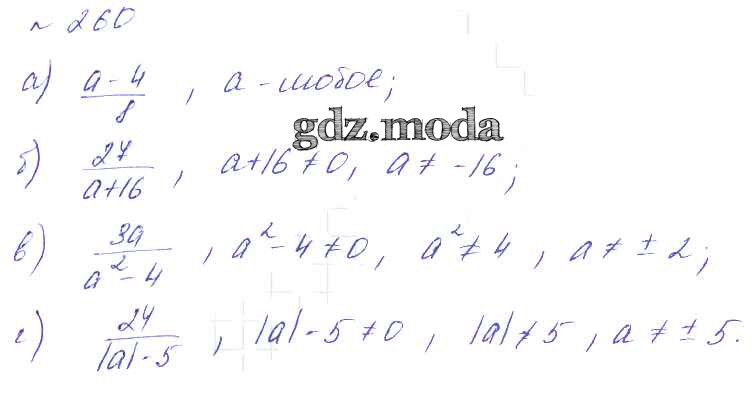 № 260
а) (a - 4)/8 , a - любое;
gdz.moda
б) 27/(a+16) , a+16 ≠ 0, a ≠ -16;
в) 3a/(a² - 4) , a² - 4 ≠ 0, a² ≠ 4 , a ≠ ± 2;
г) 24/(|a| - 5) , |a| - 5 ≠ 0 , |a| ≠ 5 , a ≠ ± 5.